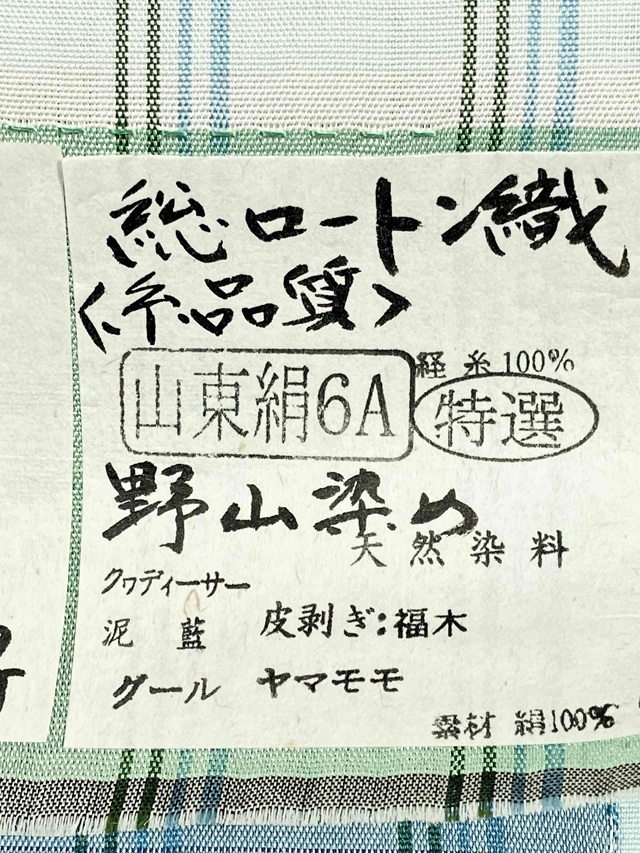 総ロートン織
<糸品質>
経糸100%
山東絹6A 特選
野山染め
天然染料
クヮディーサー
泥藍 皮剥ぎ:福木
グール ヤマモモ
素材 絹100%